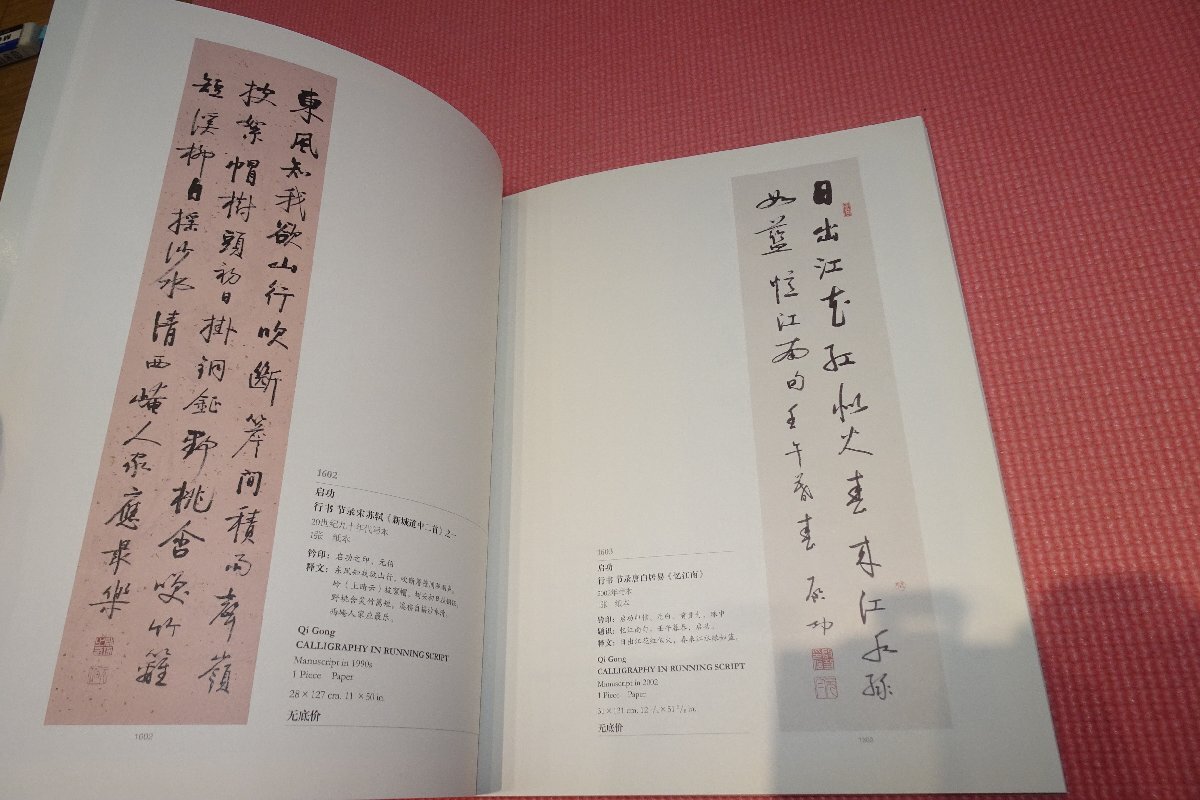 東風知我欲山行吹斷簷間積雨聲嶺
披絮帽樹頭初日掛銅鉦野桃含笑竹籬
短溪柳自搖沙水清西崦人家應最樂
1602
启功
行书 节录宋苏轼《新城道中二首》之一
20世纪九十年代写本
1张 纸本
钤印：启功之印、元伯
释文：东风知我欲山行，吹断簷间积雨声。
岭（上晴云）披絮帽，树头初日挂铜钲。
野桃含笑竹篱短，溪柳自摇沙水清。
西崦人家应最乐。
Qi Gong
CALLIGRAPHY IN RUNNING SCRIPT
Manuscript in 1990s
1 Piece Paper
28×127 cm. 11×50 in.
无底价
1602
日出江花紅似火春來江水綠
如藍 憶江南句壬午暮春 啟功
1603
启功
行书 节录唐白居易《忆江南》
2002年写本
1张 纸本
题识：忆江南句，壬午暮春，启功。
释文：日出江花红似火，春来江水绿如蓝。
Qi Gong
CALLIGRAPHY IN RUNNING SCRIPT
Manuscript in 2002
1 Piece Paper
无底价
1603